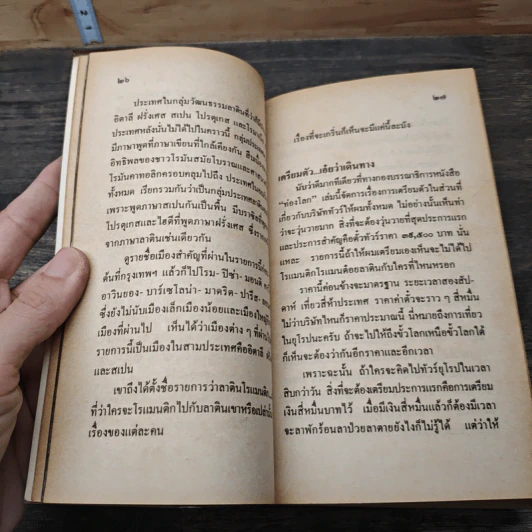 ๒๖
ประเทศในกลุ่มวัฒนธรรมลาตินที่ว่าคือ
อิตาลี ฝรั่งเศส สเปน โปรตุเกส และโรมาเนีย
ประเทศหลังนั่นไม่ได้ไปในคราวนี้ กลุ่มประเทศ
มีภาษาพูดที่ภาษาเขียนที่ใกล้เคียงกัน
อิทธิพลของชาวโรมันสมัยโบราณและศาสนา
โรมันคาทอลิกครอบคลุมไปถึง ประเทศใน
ทั้งหมด เรียกรวมกันว่าเป็นกลุ่มประเทศลาติน
เพราะพูดภาษาสเปนกันเป็นพื้น มีบราซิลที่พูด
โปรตุเกสและไฮตีที่พูดภาษาฝรั่งเศส ซึ่ง
จากภาษาลาตินเช่นเดียวกัน
ดูรายชื่อเมืองสำคัญที่ผ่านในรายการนี้
ต้นที่กรุงเทพฯ แล้วก็ไปโรม- ปิซ่า- มอนติ
อาวินยอง- บาร์เซโลน่า- มาดริด- ปารีส-
ซึ่งยังไม่นับเมืองเล็กเมืองน้อยและเมืองใหญ่
เมืองที่ผ่านไป เห็นได้ว่าเมืองต่าง ๆ ที่ผ่าน
รายการนี้เป็นเมืองในสามประเทศคืออิตาลี
และสเปน
เขาถึงได้ตั้งชื่อรายการว่าลาตินโรแมนติก
ที่ว่าใครจะโรแมนติกไปกับลาตินเขาหรือเปล่า
เรื่องของแต่ละคน
๒๗
เรื่องที่จะเกริ่นก็เห็นจะมีแค่นี้ละมัง
เตรียมตัว...เอ้ยว่าเดินทาง
นับว่าดีมากทีเดียวที่ทางกองบรรณาธิการหนังสือ
"ท่องโลก" เล่มนี้จัดการเรื่องการเตรียมตัวในส่วนที่
เกี่ยวกับบริษัททัวร์ให้ผมทั้งหมด ไม่อย่างนั้นเห็นทำ
จะวุ่นวายมาก สิ่งที่จะต้องวุ่นวายที่สุดประการแรก
และประการสำคัญคือตั๋วทัวร์ราคา ๓๕,๕๐๐ บาท นั่น
แหละ รายการนี้ถ้าให้ผมเตรียมเองเห็นจะไม่ได้ไป
โรแมนติกโรแมนต้อยลาตินกับใครที่ไหนหรอก
ราคานี้ค่อนข้างจะมาตรฐาน ระยะเวลาสองสัป-
ดาห์ เที่ยวสี่ห้าประเทศ ราคาค่าตั๋วจะราว ๆ สี่หมื่น
ไม่ว่าบริษัทไหนก็ราคาประมาณนี้ นี่หมายถึงการเที่ยว
ในยุโรปนะครับ ถ้าจะไปให้ถึงขั้วโลกเหนือขั้วโลกใต้
ก็เห็นจะต้องว่ากันอีกราคาและอีกเวลา
เพราะฉะนั้น ถ้าใครจะคิดไปทัวร์ยุโรปในเวลา
สิบกว่าวัน สิ่งที่จะต้องเตรียมประการแรกคือการเตรียม
เงินสี่หมื่นบาทไว้ เมื่อมีเงินสี่หมื่นแล้วก็ต้องมีเวลา
จะลาพักร้อนลาป่วยลาตายยังไงก็ไม่รู้ได้ แต่ว่าให้